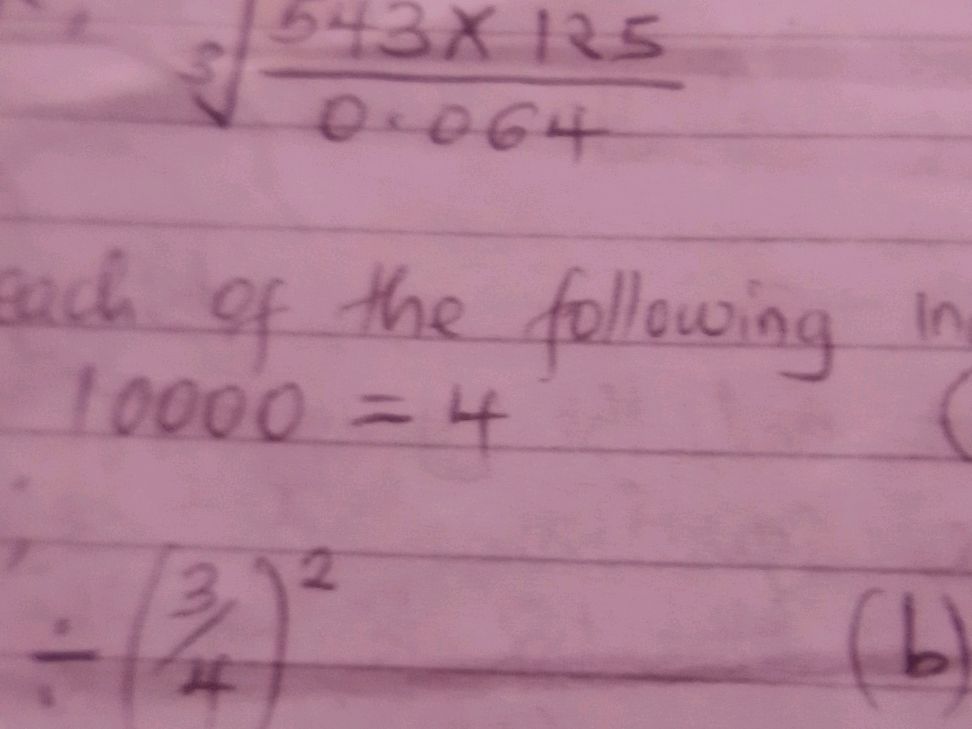 3√ 543 X 125
0.064
each of the following in
10000 = 4 (
÷ (3/4)² (b)